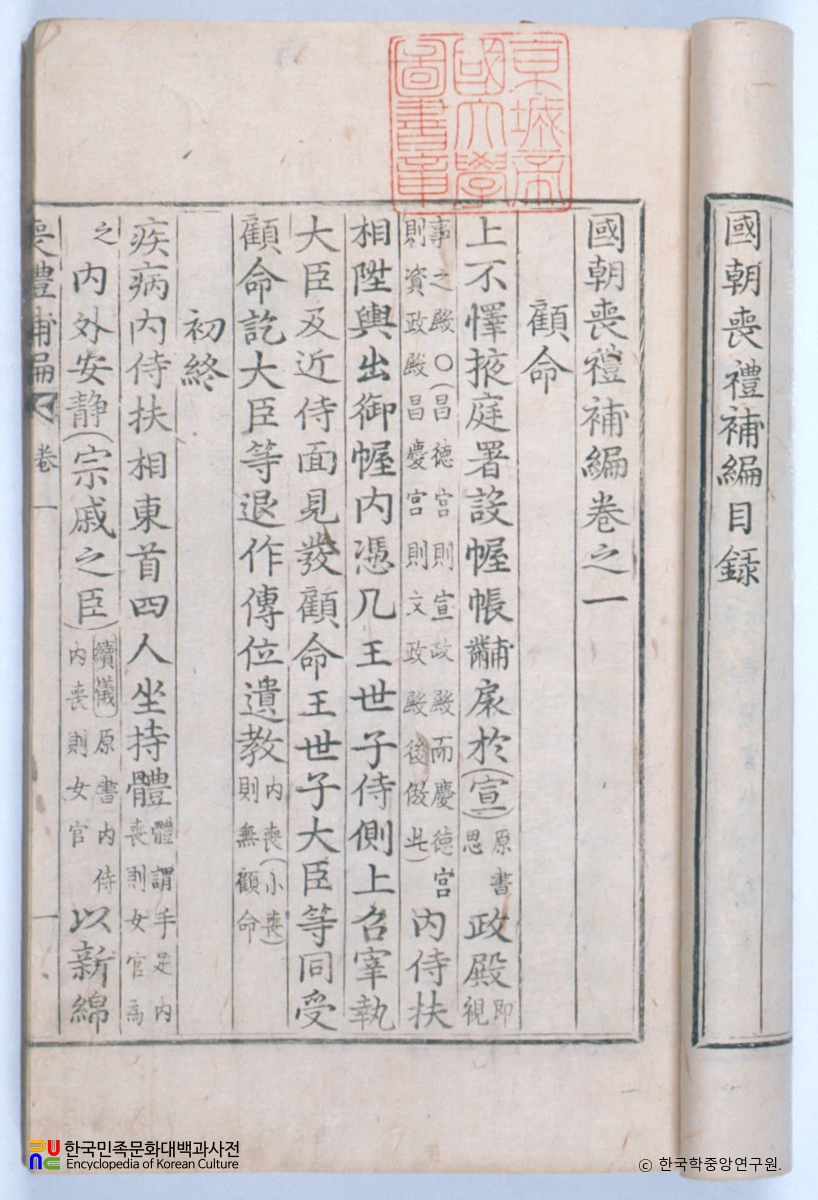 國朝喪禮補編目錄
京城帝
國大學
圖書章
國朝喪禮補編卷之一
顧命
上不懌掖庭署設幄帳黼扆於(宣)原書思政殿即視
事之殿○(昌德宮則宣政殿而慶德宮
則資政殿昌慶宮則文政殿後倣此)內侍扶
相陞輿出御幄內憑几王世子侍側上召宰執
大臣及近侍面見發顧命王世子大臣等同受
顧命訖大臣等退作傳位遺教內喪(小喪)則無顧命
初終
疾病內侍扶相東首四人坐持體體謂手足內喪則女官爲
之內外安靜(宗戚之臣)續儀原書內侍內喪則女官以新綿
喪禮補編 卷一 一
한국민족문화대백과사전
Encyclopedia of Korean Culture
© 한국학중앙연구원.